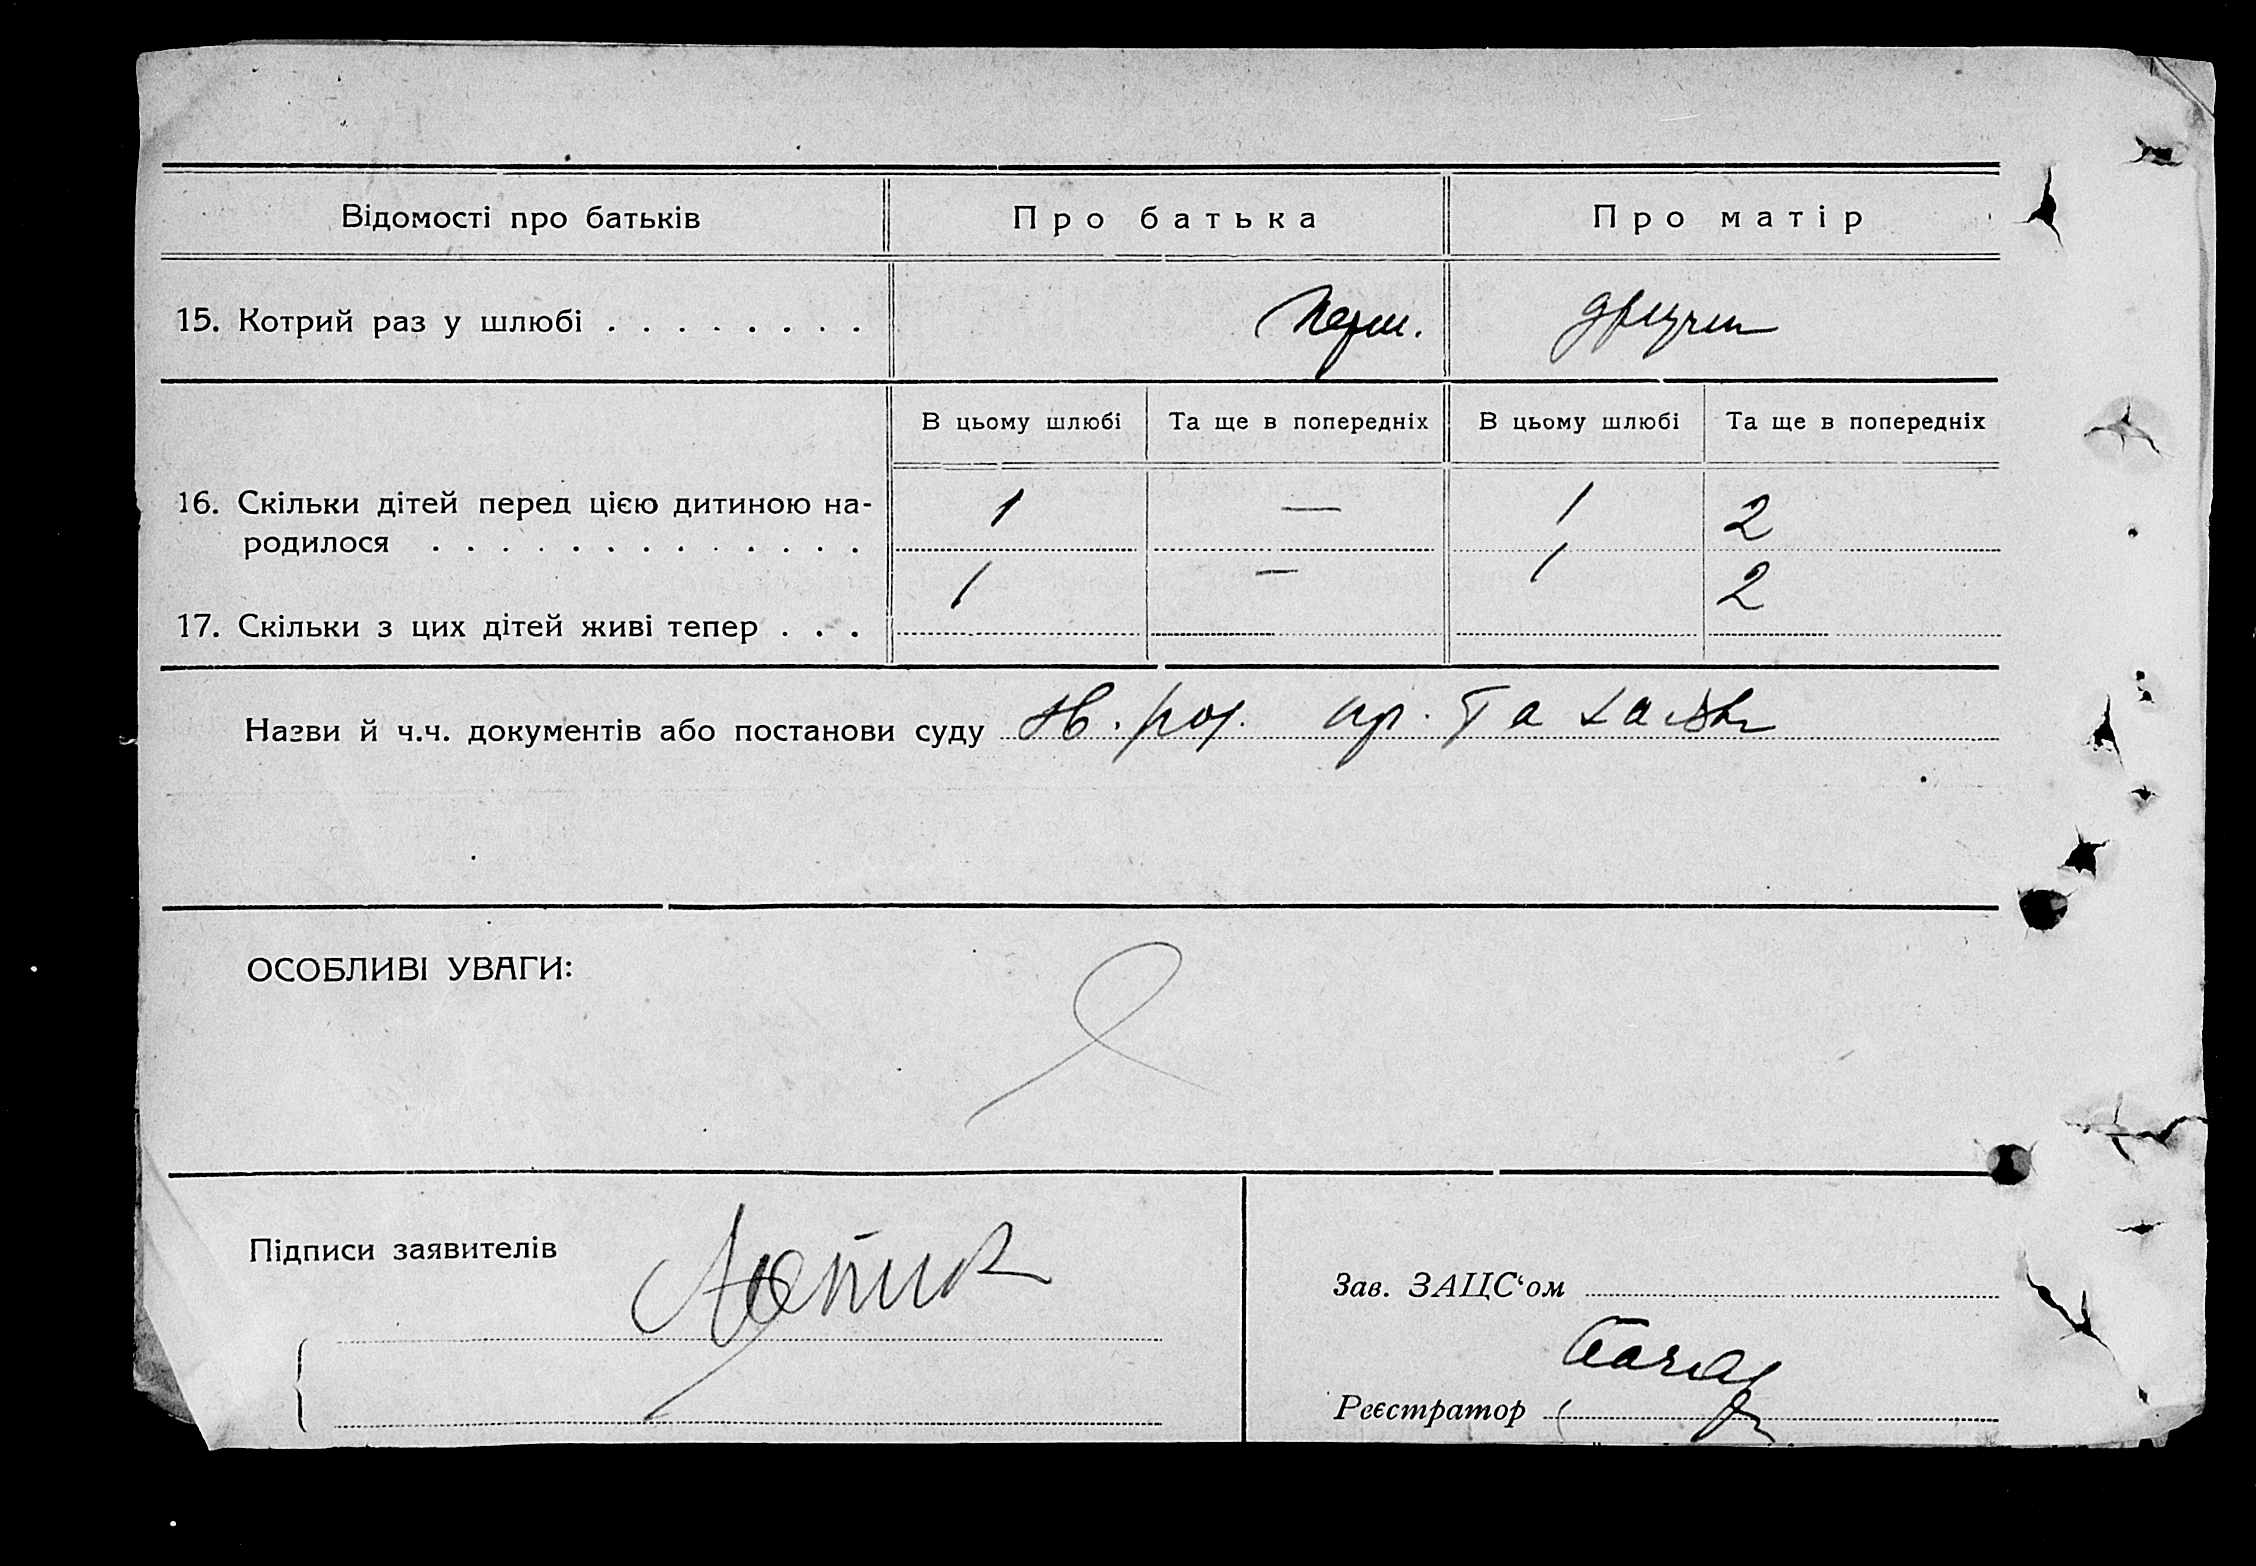 Відомості про батьків Про батька Про матір
15. Котрий раз у шлюбі . . . . . . . . Перш. двічи
В цьому шлюбі Та ще в попередніх В цьому шлюбі Та ще в попередніх
16. Скільки дітей перед цією дитиною на-
родилося . . . . . . . . . . . . . 1 — 1 2
17. Скільки з цих дітей живі тепер . . . 1 — 1 2
Назви й ч.ч. документів або постанови суду пр. та
ОСОБЛИВІ УВАГИ:
Підписи заявителів
Зав. ЗАЦС‘ом
Реєстратор